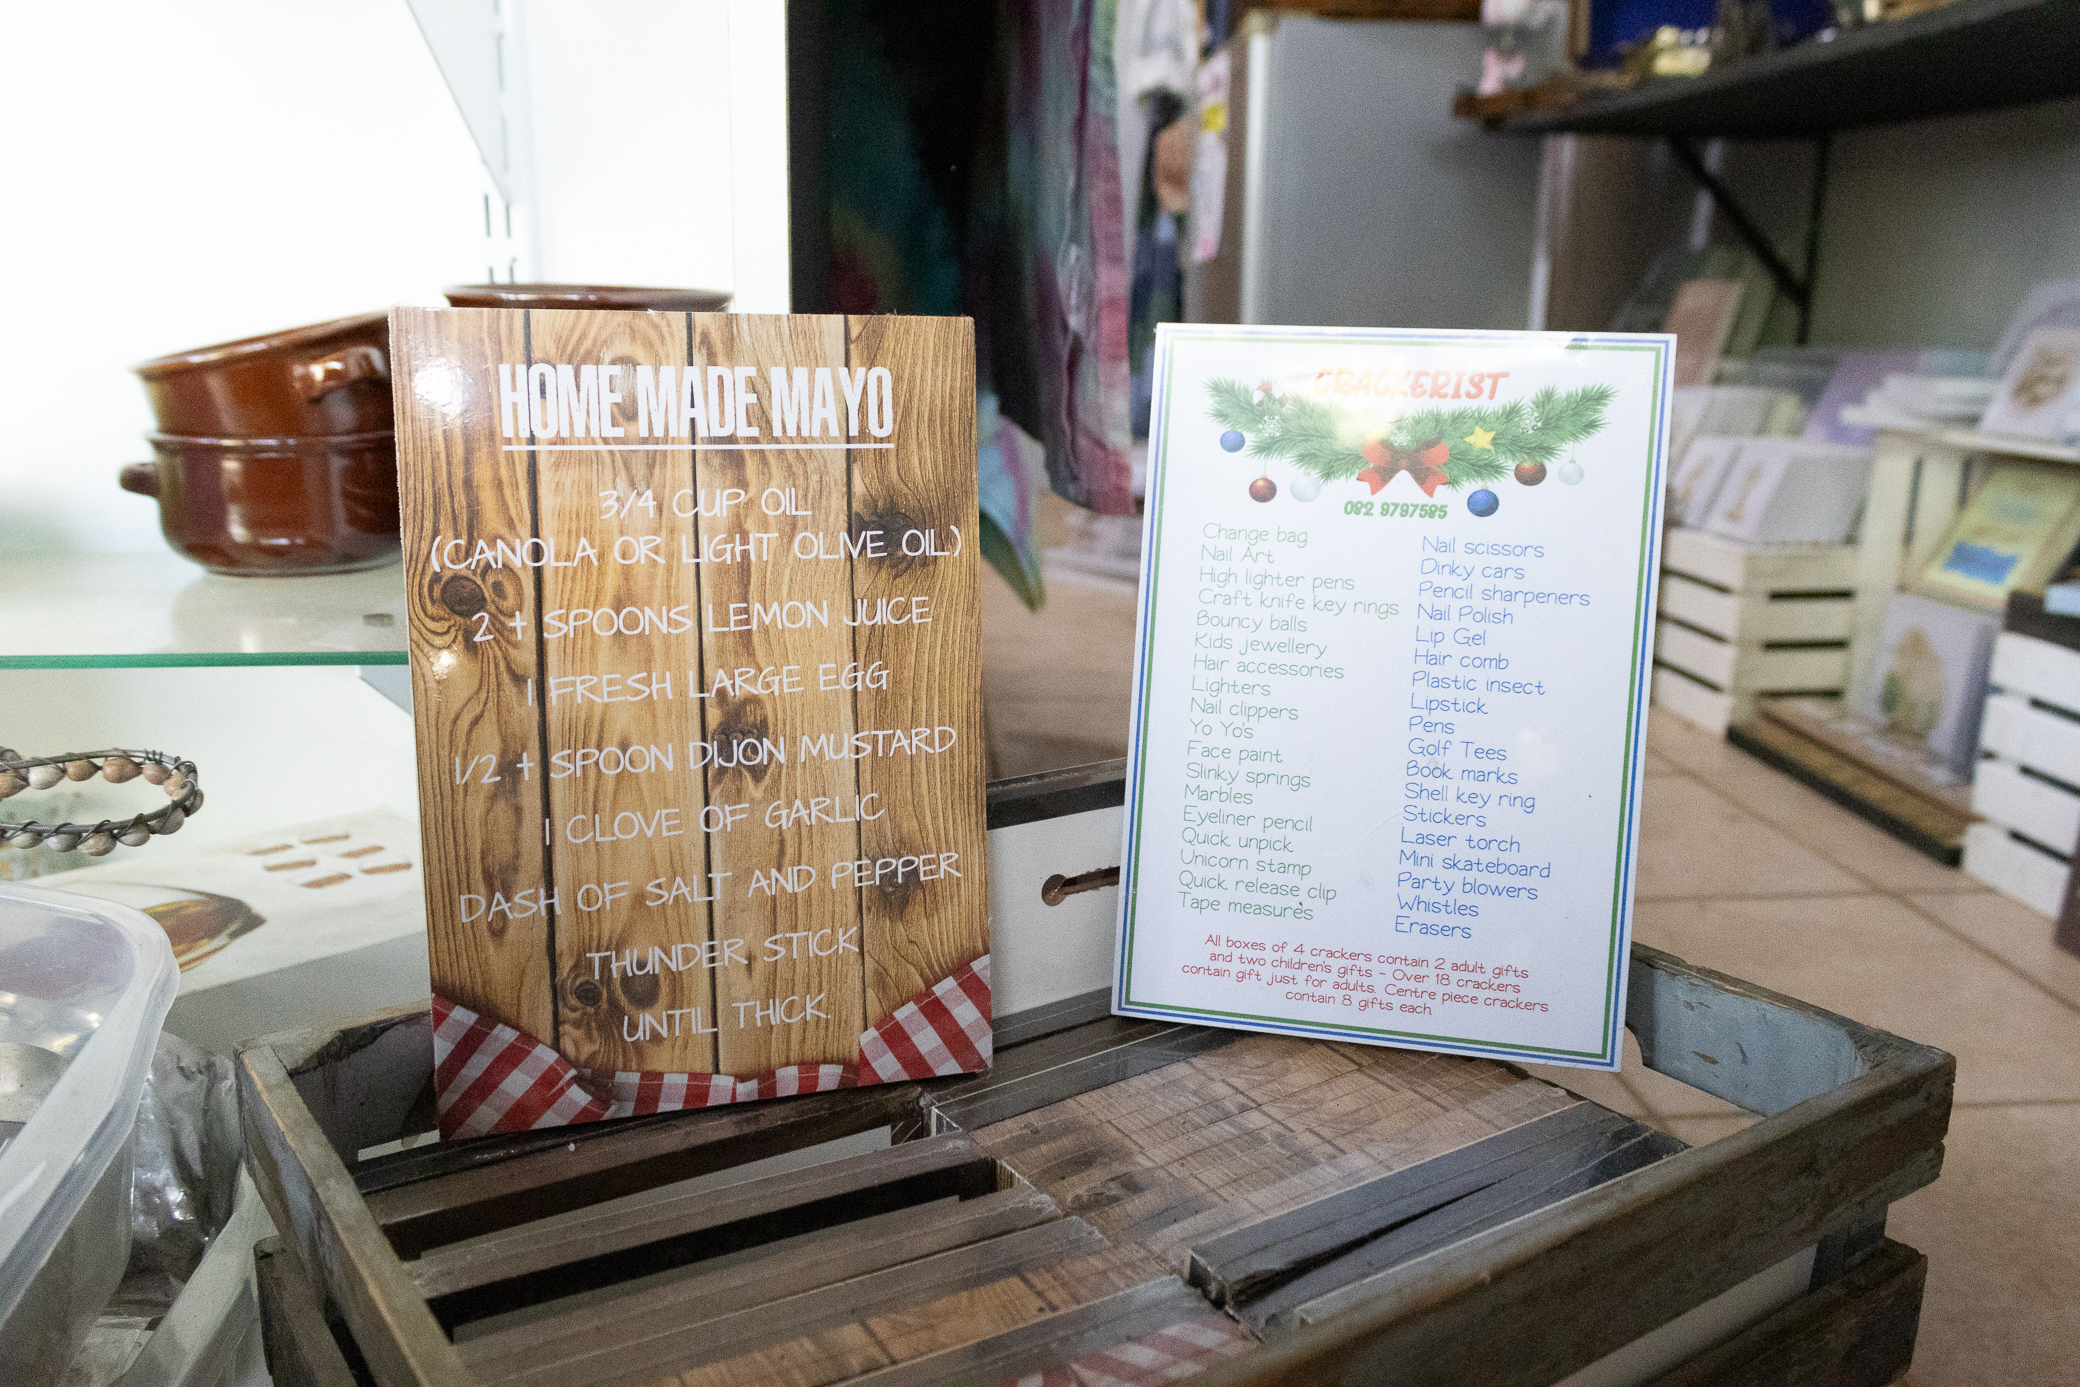 HOME MADE MAYO
3/4 CUP OIL
(CANOLA OR LIGHT OLIVE OIL)
2 t SPOONS LEMON JUICE
1 FRESH LARGE EGG
1/2 t SPOON DIJON MUSTARD
1 CLOVE OF GARLIC
DASH OF SALT AND PEPPER
THUNDER STICK
UNTIL THICK.
CRACKERIST
082 9797585
Change bag
Nail Art
High lighter pens
Craft knife key rings
Bouncy balls
Kids jewellery
Hair accessories
Lighters
Nail clippers
Yo Yo's
Face paint
Slinky springs
Marbles
Eyeliner pencil
Quick unpick
Unicorn stamp
Quick release clip
Tape measures
Nail scissors
Dinky cars
Pencil sharpeners
Nail Polish
Lip Gel
Hair comb
Plastic insect
Lipstick
Pens
Golf Tees
Book marks
Shell key ring
Stickers
Laser torch
Mini skateboard
Party blowers
Whistles
Erasers
All boxes of 4 crackers contain 2 adult gifts
and two children's gifts - Over 18 crackers
contain gift just for adults. Centre piece crackers
contain 8 gifts each.